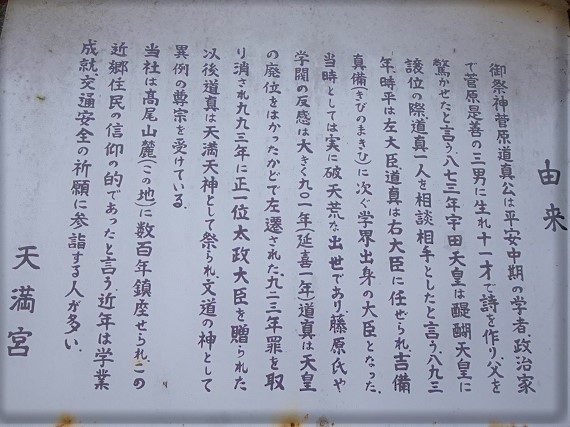 由来
御祭神菅原道真公は平安中期の学者、政治家
で菅原是善の三男に生れ十一才で詩を作り、父を
驚かせたと言う。八七三年宇田天皇は醍醐天皇に
譲位の際道真一人を相談相手としたと言う。八九三
年、時平は左大臣道真は右大臣に任ぜられ、吉備
真備(きびのまきひ)に次ぐ学界出身の大臣となった。
当時としては実に破天荒な出世であり、藤原氏や
学閥の反感は大きく九〇一年(延喜一年)道真は天皇
の廃位をはかったかどで左遷された。九二三年罪を取
り消され九九三年に正一位太政大臣を贈られた
以後道真は天満天神として祭られ、文道の神として
異例の尊宗を受けている。
当社は高尾山麓(この地)に数百年鎮座せられ、この
近郷住民の信仰の的であったと言う。近年は学業
成就交通安全の祈願に参詣する人が多い。
天満宮